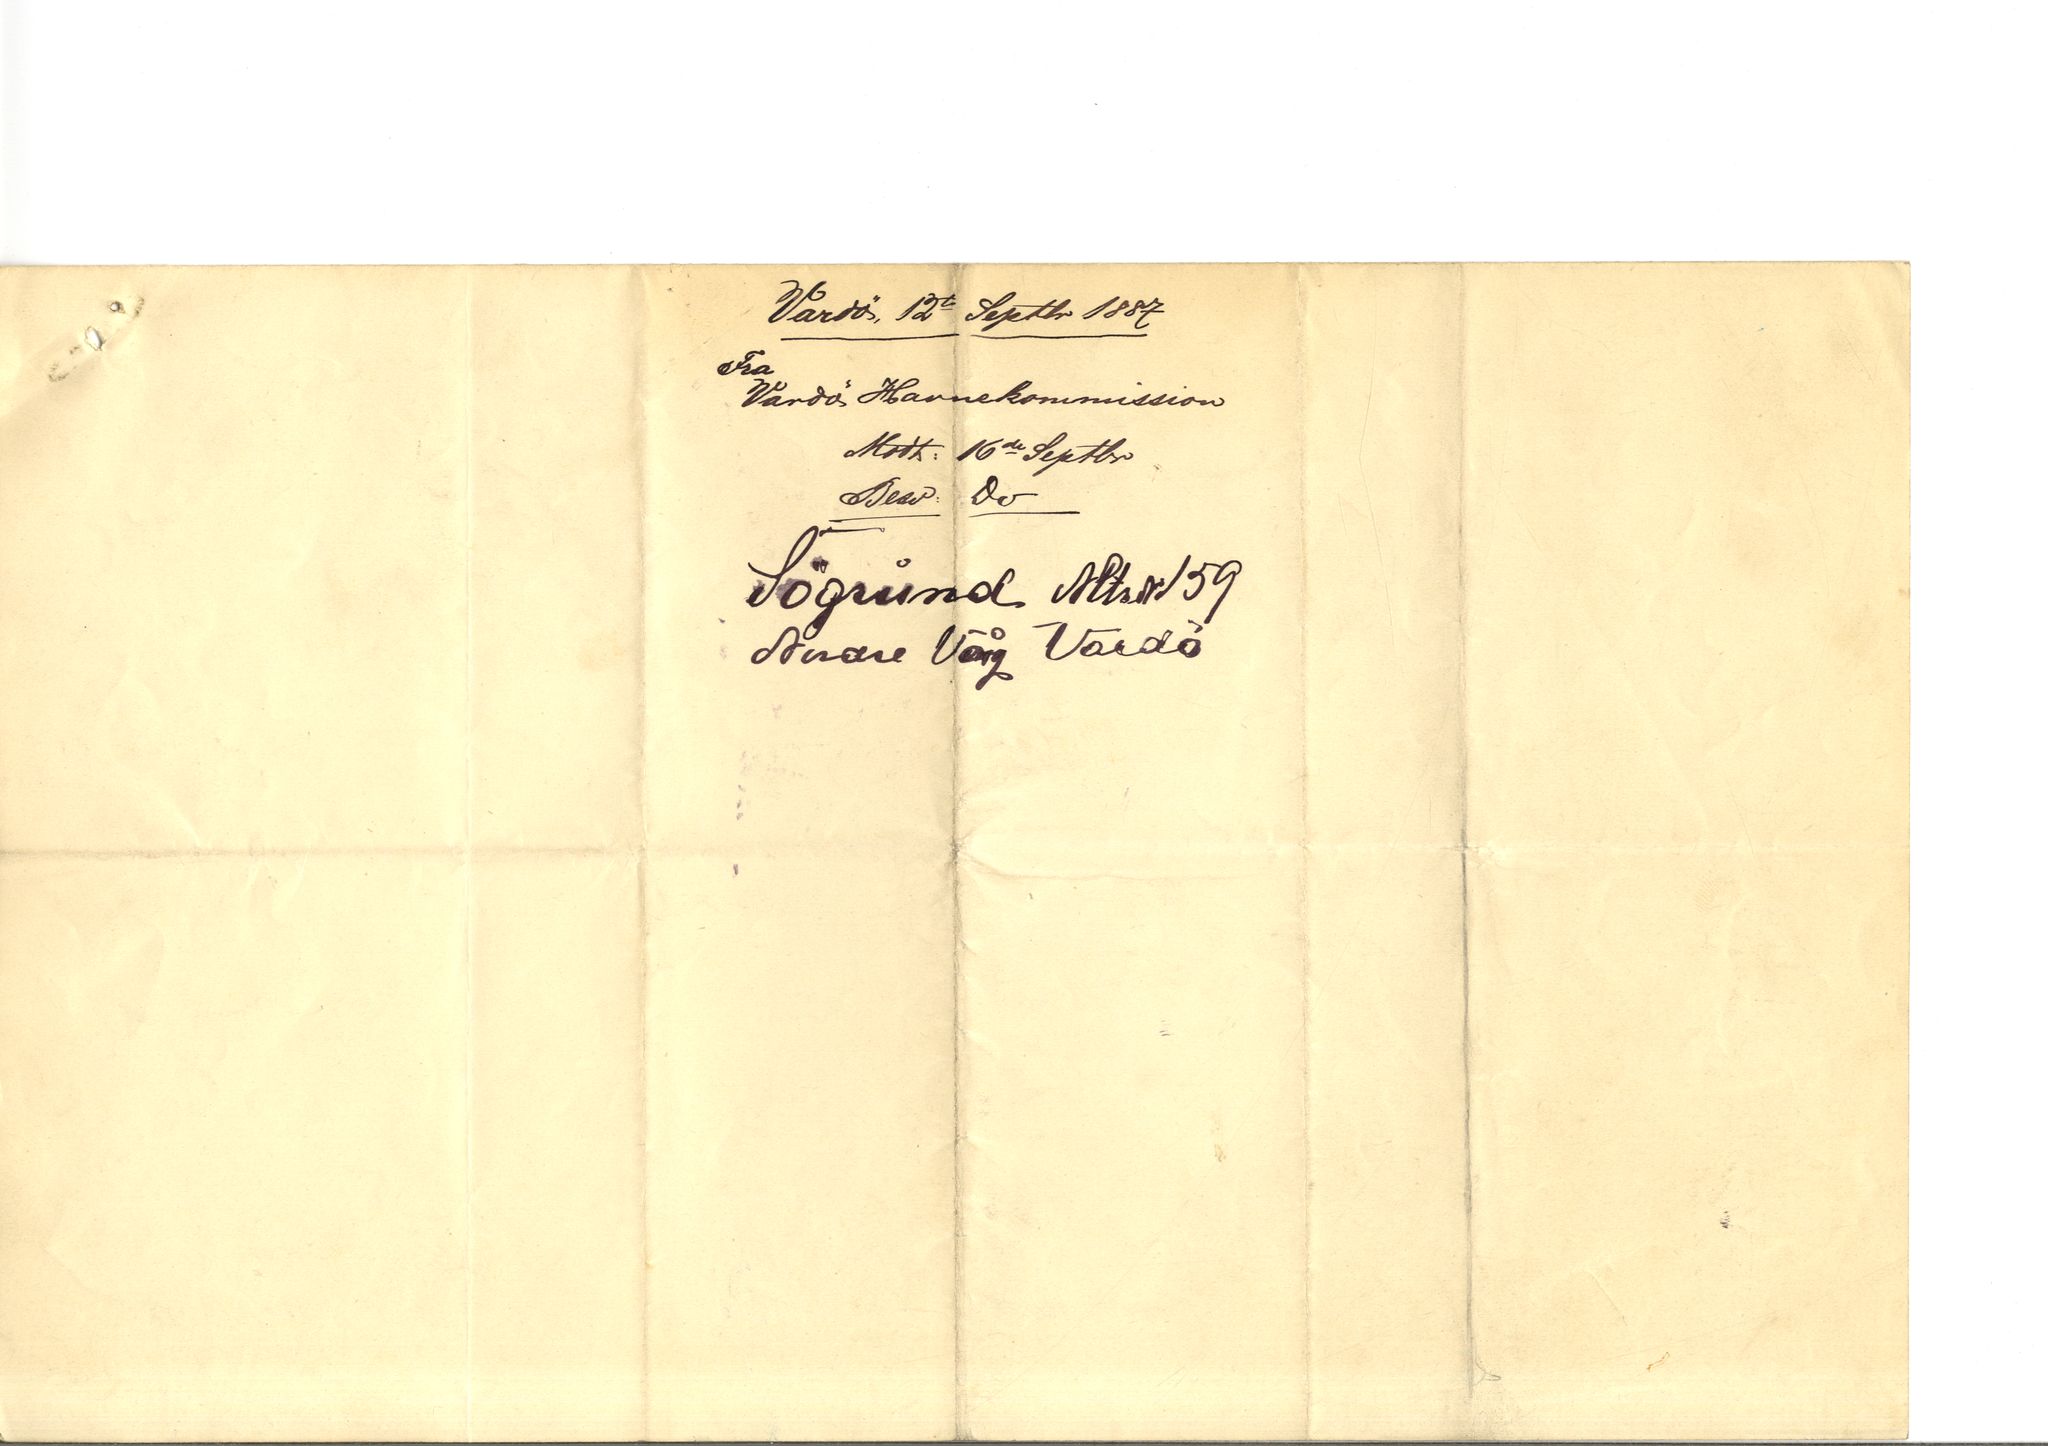 Vardö, 12te Septbr 1887
Fra
Vardö Havnekommission
Modt: 16de Septbr
Besv: Do
Sögrund Mtr. № 159
Nordre Våg Vardö